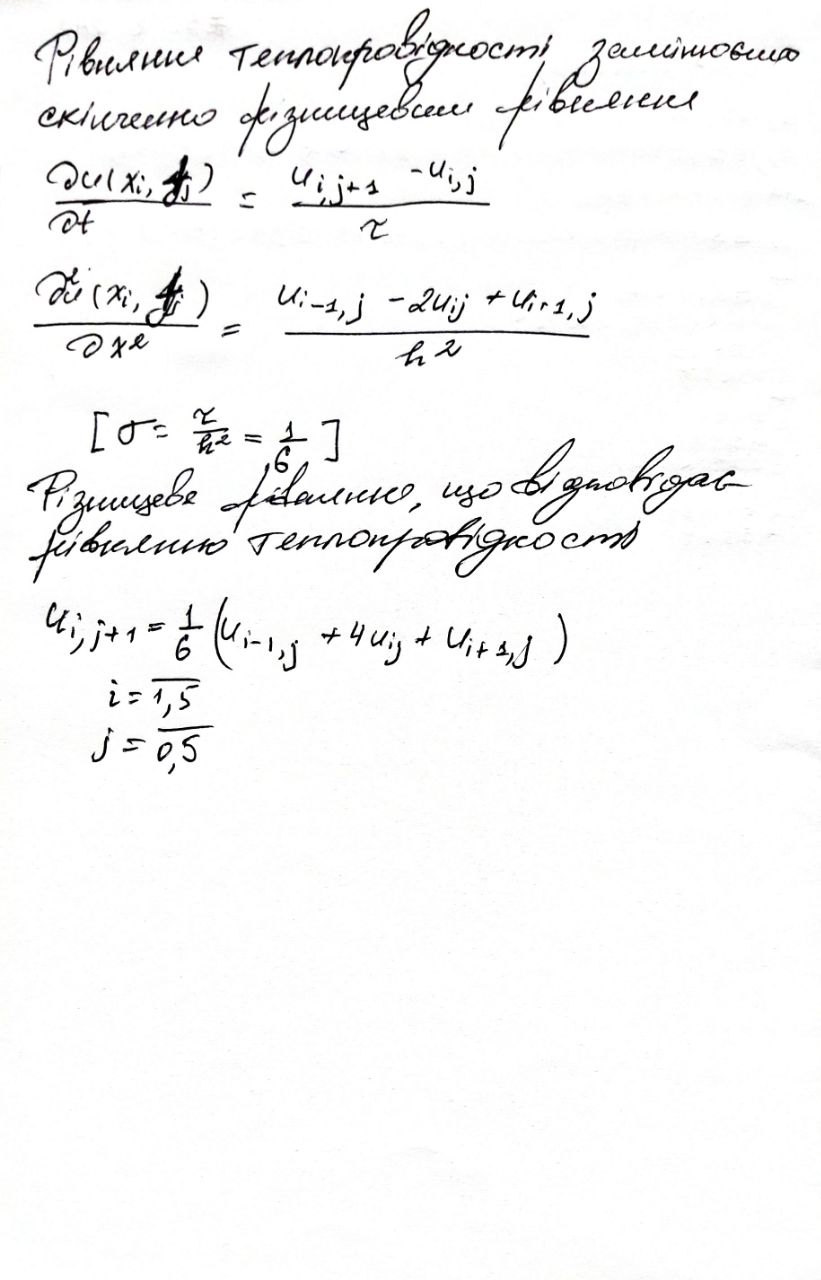 Рівняння теплопровідності замінюємо
скінченно різницевим рівняння
∂u(xᵢ, tⱼ)/∂t = (u_{i,j+1} - u_{i,j})/τ
∂²u(xᵢ, tⱼ)/∂x² = (u_{i-1,j} - 2u_{ij} + u_{i+1,j})/h²
[σ = τ/h² = 1/6]
Різницеве рівняння, що відповідає
рівнянню теплопровідності
u_{i,j+1} = 1/6 (u_{i-1,j} + 4u_{ij} + u_{i+1,j})
i = \overline{1,5}
j = \overline{0,5}